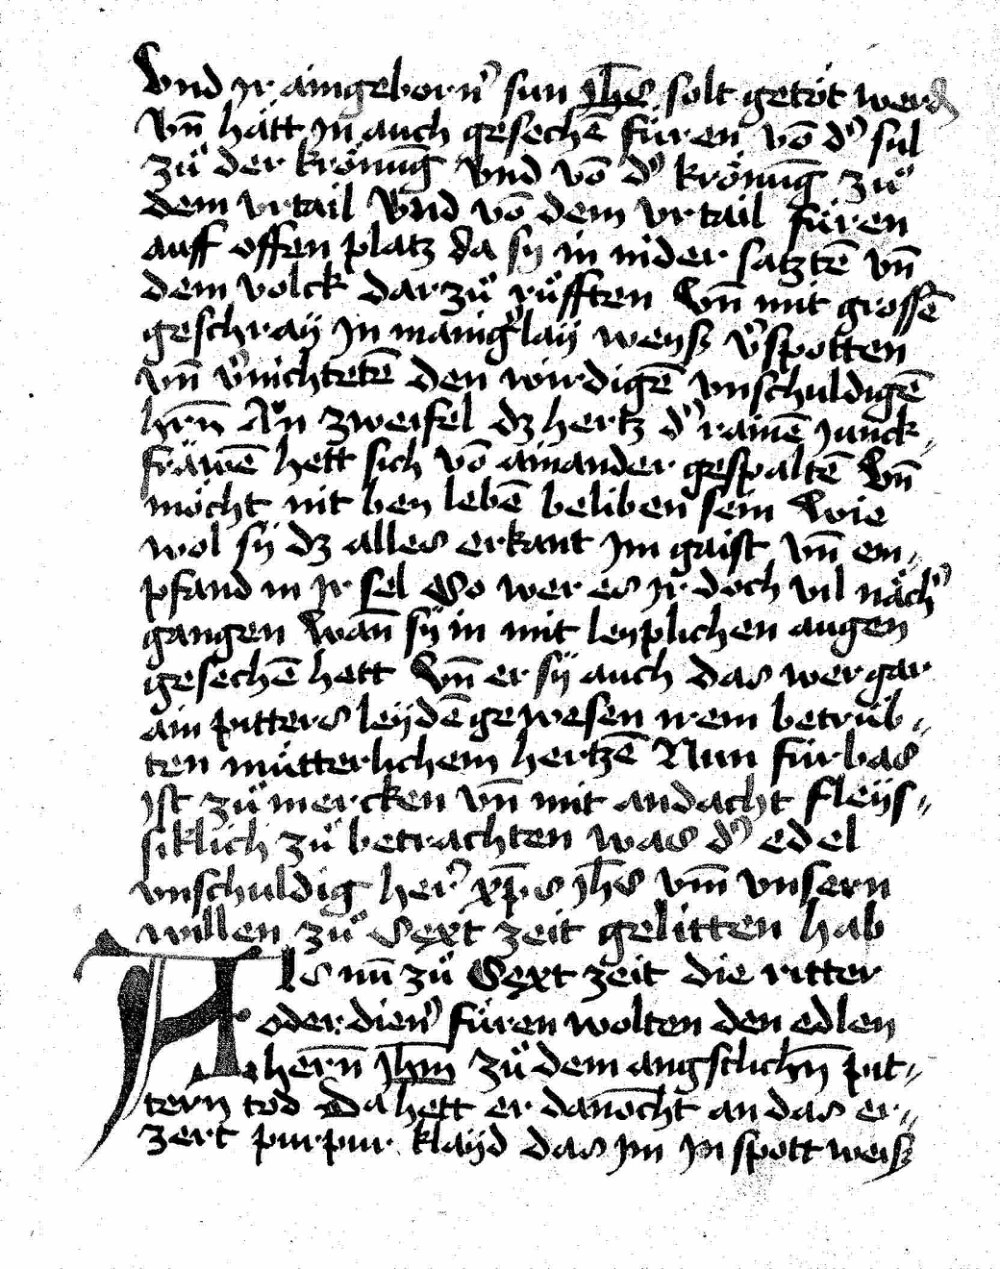 Vnd jr aingeborn᷑ sun Jhs̄ solt getöt werdñ
Vn̄ hätt jn auch gesechē füren vō d᷑ sul
zů der krönūg Vnd vō d᷑ krönūg zů
dem vrtail Vnd vō dem vrtail füren
auff offen platz da sy in nider satztē vn̄
dem volck dar zů růfften Vn̄ mit grossē
geschray jn manig᷑lay weyß v᷑spotten
vn̄ v᷑nichtetē den wirdigē vnschuldigē
hrn̄ An zweifel dz hertz d᷑ rainē junck⸗
frawē hett sich vō ainander gespaltē Vn̄
möcht nit bey lebē beliben sein Wie
wol sy dz alles erkant jm gaist vn̄ em⸗
pfand in jr sel So wer es jr doch vil näch᷑
gangen Wan̄ sy in mit leyplichen augen
gesechē hett Vn̄ er sy auch das wer gar
ain pitters leydē gewesen irem betrüb⸗
ten mütterlichem hertzē Nun fürbas
jst zů mercken vn̄ mit andacht fleys⸗
siklich zů betrachten was d᷑ edel
vnschuldig her᷑ xp̄s Jhs̄ vm̄ vnsern
willen zů Sext zeit gelitten hab
Als nun̄ zů Sext zeit die ritter
oder dien᷑ füren wolten den edlen
hern̄ Jhm̄ zů dem angstlichn̄ pit⸗
tern tod Da hett er dan̄ocht an das er⸗
zert purpur klayd das jm jn spott weiß